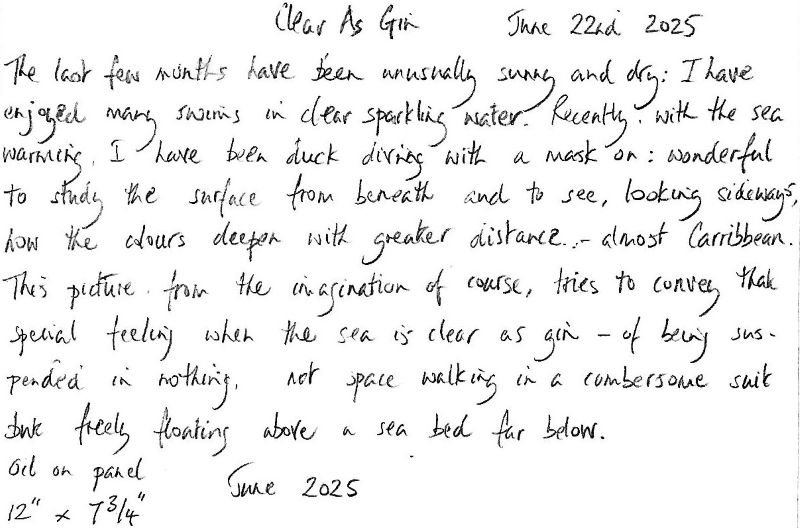 Clear As Gin June 22nd 2025
The last few months have been unusually sunny and dry: I have
enjoyed many swims in clear sparkling water. Recently, with the sea
warming, I have been duck diving with a mask on: wonderful
to study the surface from beneath and to see, looking sideways,
how the colours deepen with greater distance.. - almost Carribbean.
This picture, from the imagination of course, tries to convey that
special feeling when the sea is clear as gin - of being sus-
pended in nothing, not space walking in a cumbersome suit
but freely floating above a sea bed far below.
Oil on panel
12" x 7 3/4" June 2025